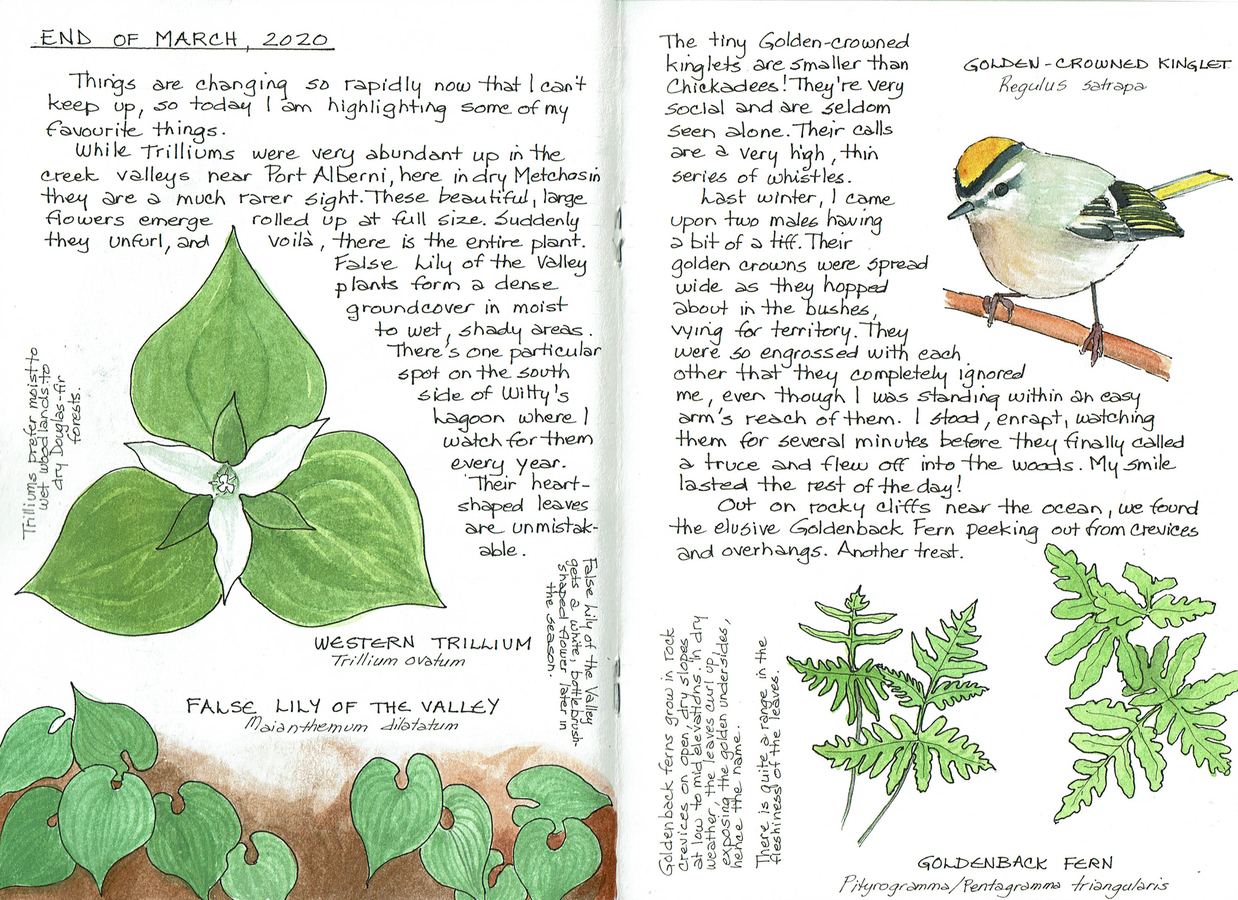 END OF MARCH, 2020
Things are changing so rapidly now that I can't
keep up, so today I am highlighting some of my
favourite things.
While Trilliums were very abundant up in the
creek valleys near Port Alberni, here in dry Metchosin
they are a much rarer sight. These beautiful, large
flowers emerge rolled up at full size. Suddenly
they unfurl, and voilà, there is the entire plant.
False Lily of the Valley
plants form a dense
groundcover in moist
to wet, shady areas.
There's one particular
spot on the south
side of Witty's
Lagoon where I
watch for them
every year.
Their heart-
shaped leaves
are unmistak-
able.
Trilliums prefer moist to
wet woodlands to
dry Douglas-fir
forests.
WESTERN TRILLIUM
Trillium ovatum
False Lily of the Valley
gets a white, bottlebrush-
shaped flower later in
the season.
FALSE LILY OF THE VALLEY
Maianthemum dilatatum
The tiny Golden-crowned
kinglets are smaller than
Chickadees! They're very
social and are seldom
seen alone. Their calls
are a very high, thin
series of whistles.
Last winter, I came
upon two males having
a bit of a tiff. Their
golden crowns were spread
wide as they hopped
about in the bushes,
vying for territory. They
were so engrossed with each
other that they completely ignored
me, even though I was standing within an easy
arm's reach of them. I stood, enrapt, watching
them for several minutes before they finally called
a truce and flew off into the woods. My smile
lasted the rest of the day!
Out on rocky cliffs near the ocean, we found
the elusive Goldenback Fern peeking out from crevices
and overhangs. Another treat.
GOLDEN-CROWNED KINGLET
Regulus satrapa
Goldenback ferns grow in rock
crevices on open, dry slopes
at low to mid elevations. In dry
weather, the leaves curl up,
exposing the golden undersides,
hence the name.
There is quite a range in the
fleshiness of the leaves.
GOLDENBACK FERN
Pityrogramma/Pentagramma triangularis